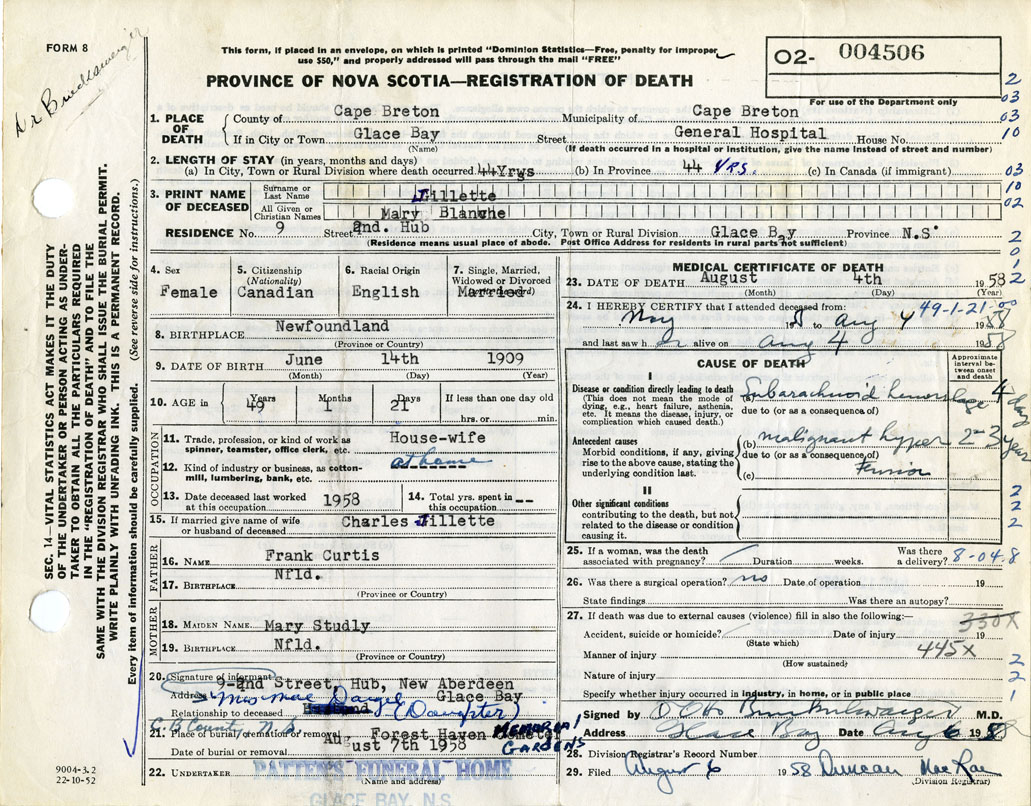 FORM 8
This form, if placed in an envelope, on which is printed "Dominion Statistics—Free, penalty for improper
use $50," and properly addressed will pass through the mail "FREE"
PROVINCE OF NOVA SCOTIA—REGISTRATION OF DEATH
02- 004506
For use of the Department only
2
03
03
10
03
10
02
2
0
1
2
SEC. 14—VITAL STATISTICS ACT MAKES IT THE DUTY
OF THE UNDERTAKER OR PERSON ACTING AS UNDER-
TAKER TO OBTAIN ALL THE PARTICULARS REQUIRED
IN THE "REGISTRATION OF DEATH" AND TO FILE THE
SAME WITH THE DIVISION REGISTRAR WHO SHALL ISSUE THE BURIAL PERMIT.
WRITE PLAINLY WITH UNFADING INK. THIS IS A PERMANENT RECORD.
Every item of information should be carefully supplied. (See reverse side for instructions.)
1. PLACE OF DEATH
County of Cape Breton Municipality of Cape Breton
If in City or Town Glace Bay Street General Hospital House No.
(Name) (If death occurred in a hospital or institution, give the name instead of street and number)
2. LENGTH OF STAY (in years, months and days)
(a) In City, Town or Rural Division where death occurred 44Yrs (b) In Province 44 YRS. (c) In Canada (if immigrant)
3. PRINT NAME OF DECEASED
Surname or Last Name Jillette
All Given or Christian Names Mary Blanche
RESIDENCE No. 9 Street 2nd. Hub City, Town or Rural Division Glace Bay Province N.S.
(Residence means usual place of abode. Post Office Address for residents in rural parts not sufficient)
4. Sex
Female
5. Citizenship
(Nationality)
Canadian
6. Racial Origin
English
7. Single, Married,
Widowed or Divorced
Married
8. BIRTHPLACE Newfoundland
(Province or Country)
9. DATE OF BIRTH June 14th 1909
(Month) (Day) (Year)
10. AGE in Years Months Days If less than one day old
49 1 21 hrs. or min.
OCCUPATION
11. Trade, profession, or kind of work as
spinner, teamster, office clerk, etc. House-wife
12. Kind of industry or business, as cotton-
mill, lumbering, bank, etc. at home
13. Date deceased last worked
at this occupation 1958
14. Total yrs. spent in
this occupation --
15. If married give name of wife
or husband of deceased Charles Jillette
FATHER
16. NAME Frank Curtis
17. BIRTHPLACE Nfld.
(Province or Country)
MOTHER
18. MAIDEN NAME Mary Studly
19. BIRTHPLACE Nfld.
(Province or Country)
20. Signature of informant
9-2nd Street, Hub, New Aberdeen
Address Mrs Mae Glace Bay
Relationship to deceased (Daughter)
C.B. County, N.S.
21. Place of burial, cremation or removal Forest Haven MEMORIAL GARDENS
Date of burial or removal August 7th 1958
22. UNDERTAKER PATTEN'S FUNERAL HOME
(Name and address)
GLACE BAY, N.S.
9004-3.2
22-10-52
MEDICAL CERTIFICATE OF DEATH
23. DATE OF DEATH August 4th 1958
(Month) (Day) (Year)
24. I HEREBY CERTIFY that I attended deceased from: 49-1-21-00
to Aug 4 1958
and last saw her alive on Aug 4 1958
CAUSE OF DEATH
Approximate
interval be-
tween onset
and death
I
Disease or condition directly leading to death
(This does not mean the mode of
dying, e.g., heart failure, asthenia,
etc. It means the disease, injury, or
complication which caused death.)
Subarachnoid hemorrhage 4 days
due to (or as a consequence of)
Antecedent causes
Morbid conditions, if any, giving
rise to the above cause, stating the
underlying condition last.
(b) malignant hyper 2-3 years
due to (or as a consequence of)
(c) tension
II
Other significant conditions
contributing to the death, but not
related to the disease or condition
causing it.
2
2
2
25. If a woman, was the death
associated with pregnancy? Duration weeks. Was there
a delivery? 8-04.8
26. Was there a surgical operation? no Date of operation 19
State findings Was there an autopsy?
27. If death was due to external causes (violence) fill in also the following:— 330X
Accident, suicide or homicide? Date of injury 19
(State which) 445X
Manner of injury 2
(How sustained)
Nature of injury 2
Specify whether injury occurred in industry, in home, or in public place 1
Signed by M.D.
Address Glace Bay Date Aug 6 1958
28. Division Registrar's Record Number
29. Filed August 6 1958 Duncan MacRae
(Division Registrar)